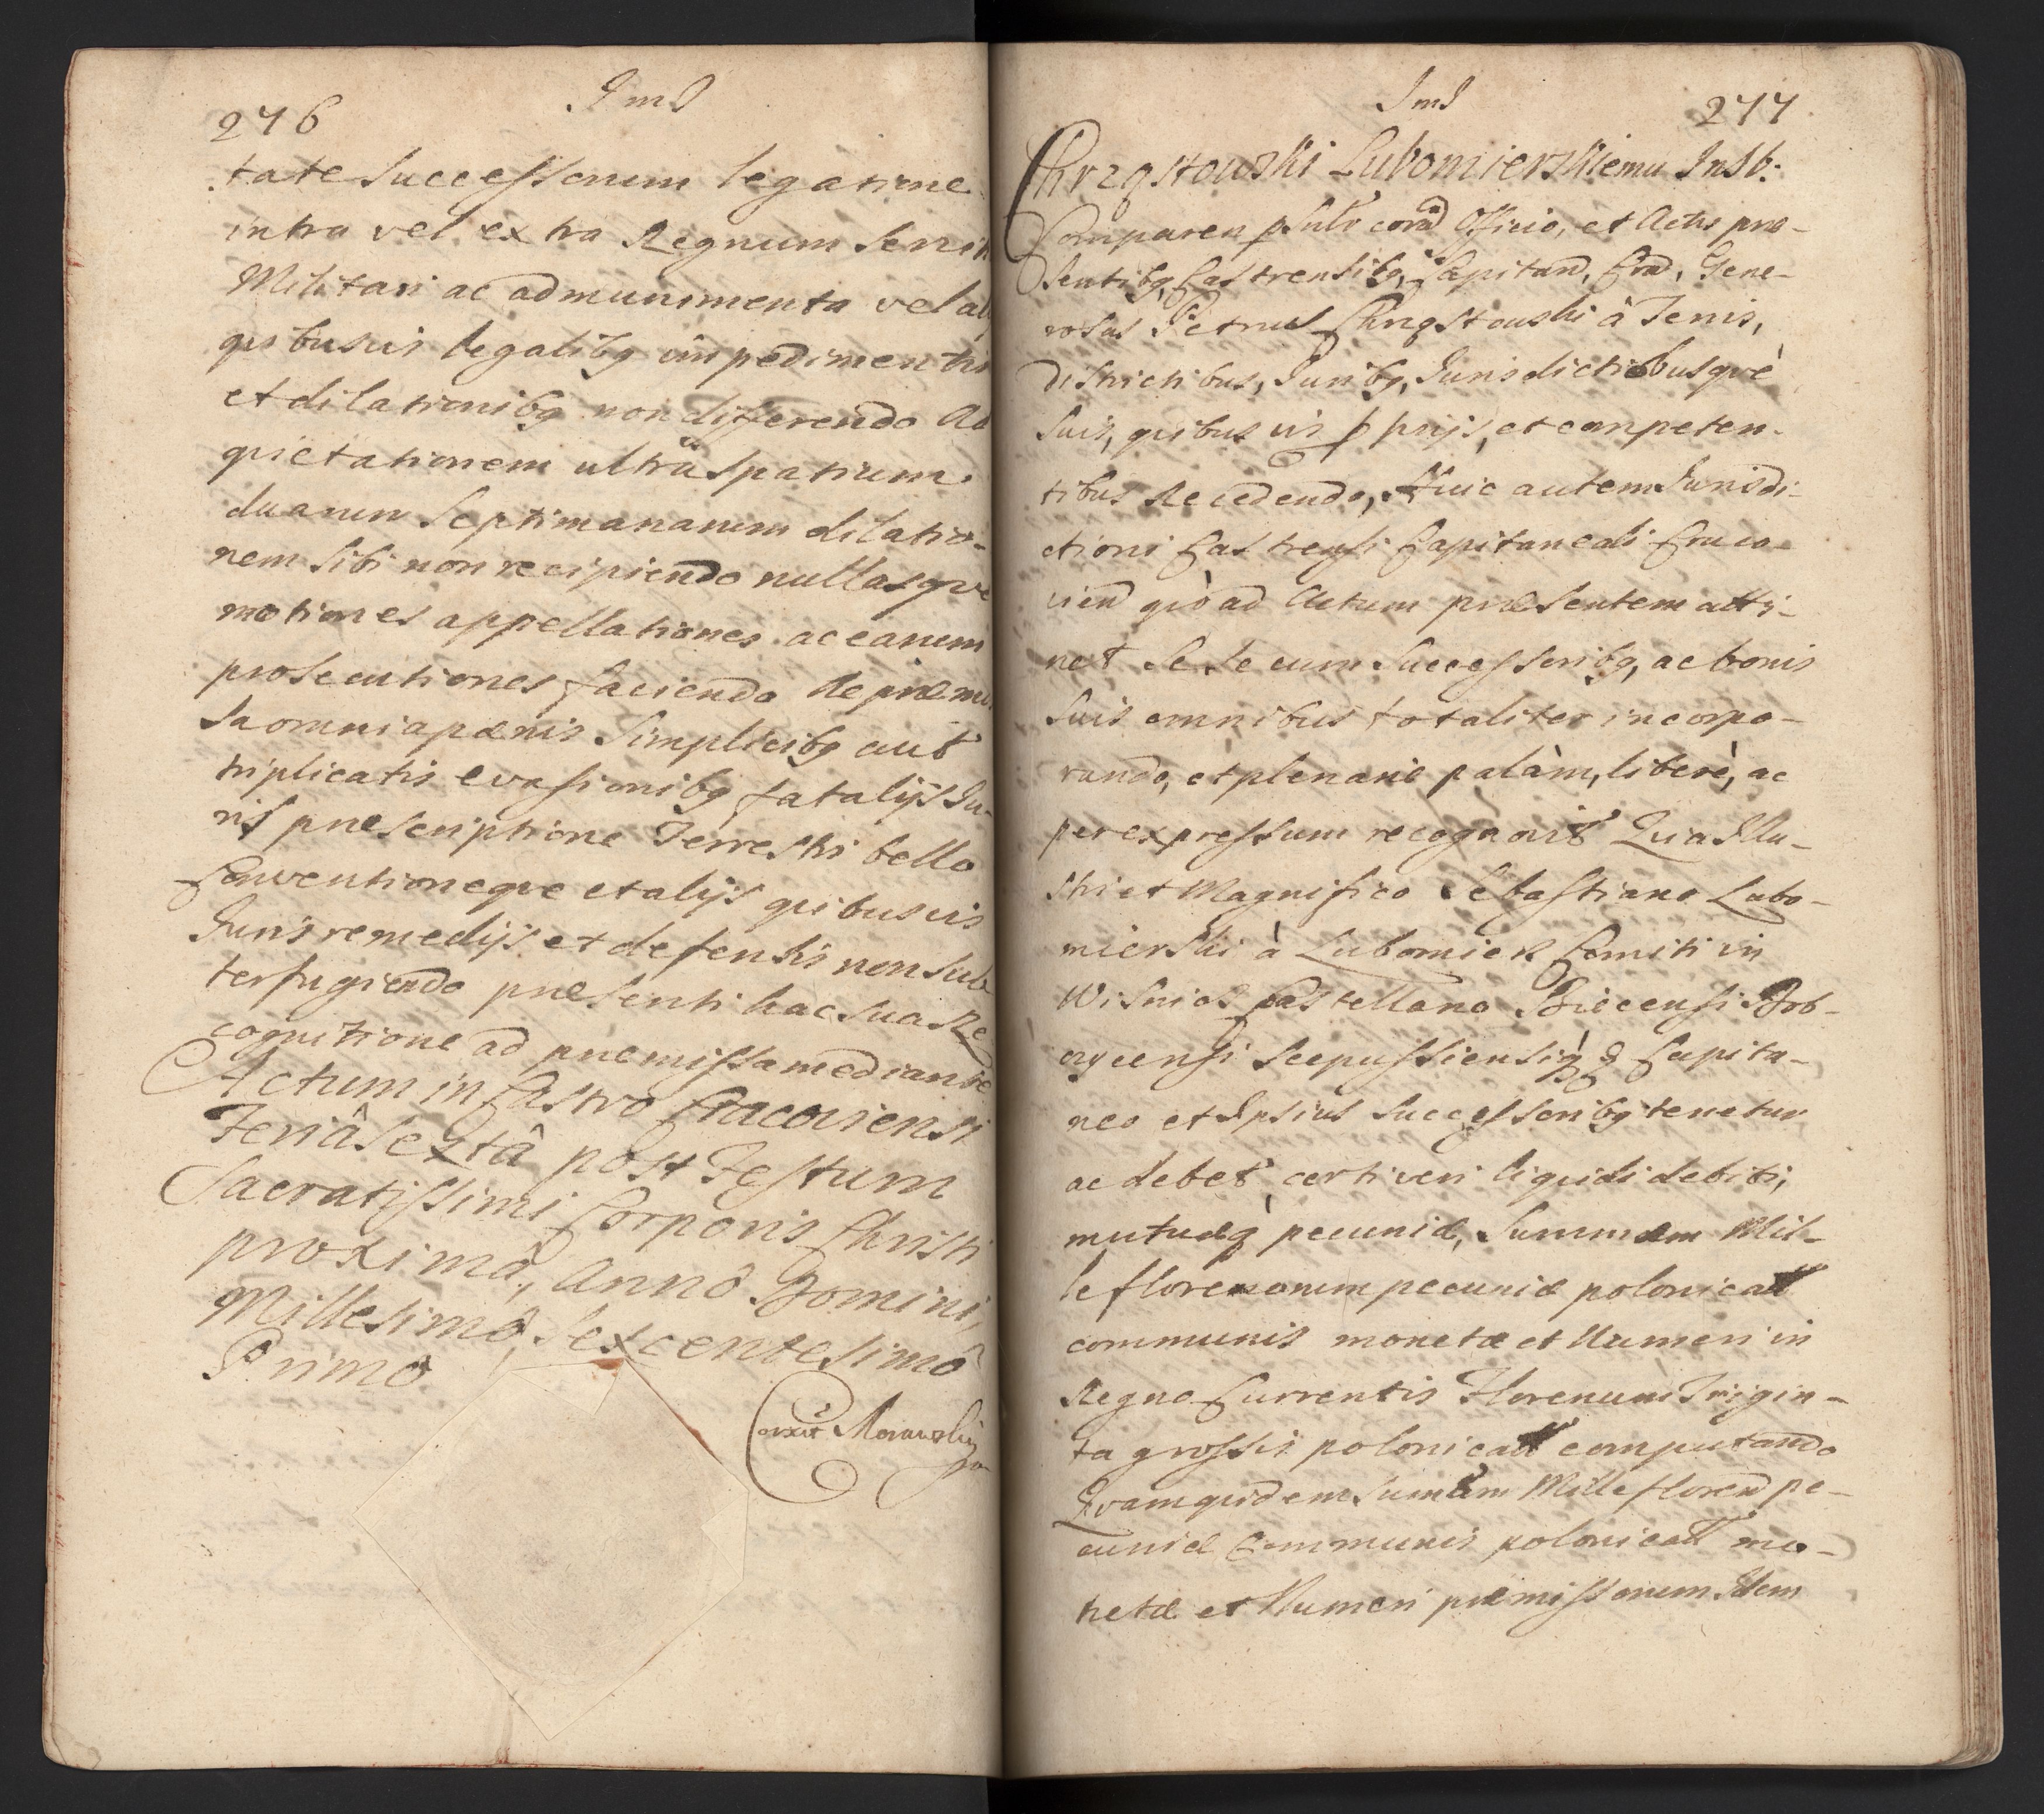 276
Jms
tate Successorum legatione
intra vel extra Regnum Servi
Militari ac ad munimenta vel al
quibusvis legalibq impedimentis
et dilationibq non differendo Ad
quietationem ultra spatium
duarum Septimanarum dilatio-
nem sibi non recipiendo nullasque
motiones appellationes ac earum
prosecutiones faciendo de præmi
sa omnia pænis Simplicibq aut
triplicatis evasionibq fatalijs Ju-
ris præscriptione Terrestri bello
Conventioneque et alijs quibusvis
Juris remedijs et defensis non sub
terfugiendo præsenti hac sua Re
cognitione ad præmissa mediante
Actum in Castro Cracoviensi
Feriâ sextâ post Festum
Sacratissimi Corporis Christi
proximâ, Annô Domini,
Millesimô, Sexcentesimô
Primô
Corrxit Morawskij
Jms
277
Chrząstowski Lubomierskiemu Insb:
Comparen psnlr corad Officio, et Actis præ-
sentibq, Castrensibq, Capitand, Crad, Gene-
rosus Petrus Chrząstouski à Terris,
Districtibus, Juribq, Jurisdictiobusquè
suis, quibus vis pprijs, et competen-
tibus Recedendo, Huic autem Jurisdi-
ctioni Castrensi Capitaneali Craco-
viend qòad Actum præsentem atti-
net Se se cum Successoribq, ac bonis
suis omnibus totaliter incorpo-
rando, et plenarie palàm, liberè, ac
per expressum recognovit Quia Illu-
stri et Magnifico Sebastiano Lubo-
mierski à Lubomierz Comiti in
Wisnicz Castellano Biecensi Dob-
czycensi Scepussiensiqq Capita-
neo et Ipsius successoribq tenetur
ac debet, certi veri liquidi debiti,
mutuæq pecuniæ, Summam Mil-
le florenorum pecuniæ polonicall
communis monetæ et Numeri in
Regno Currentis Florenum Trigin-
ta grossis polonicall computando
Quam quidem Sumam Mille florend pe-
cuniæ Communis polonicall mo-
netæ et Numeri præmissorum Idem